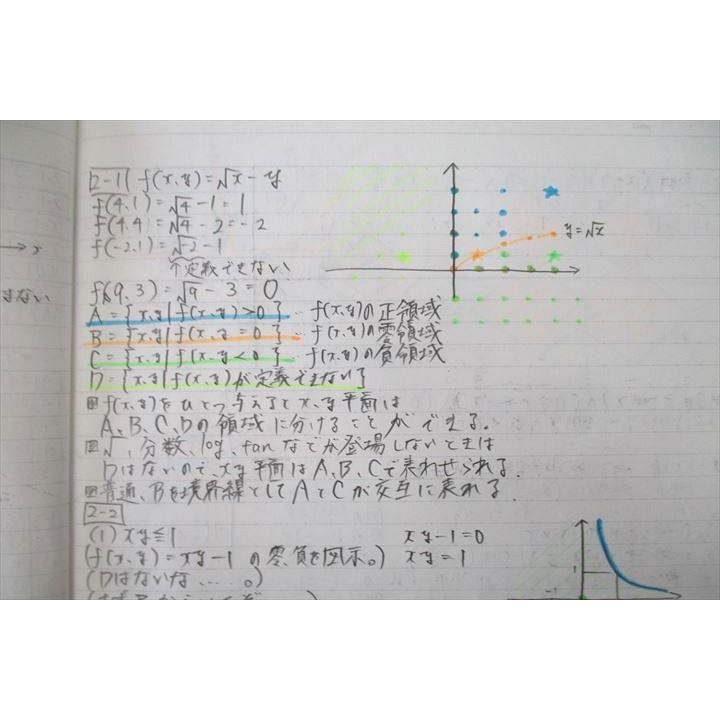 2-1 f(x,y)=√x-y
f(4,1)=√4-1=1
f(4,4)=√4-2=-2
f(-2,1)=√-2-1
定義できない
f(9,3)=√9-3=0
y=√x
A={x,y|f(x,y)>0}…f(x,y)の正領域
B={x,y|f(x,y=0}…f(x,y)の零領域
C={x,y|f(x,y<0}…f(x,y)の負領域
D={x,y|f(x,y)が定義できない}
f(x,y)をひとつ与えるとx,y平面は
A、B、C、Dの領域に分けることができる。
√、分数、log、tanなどが登場しないときは
Dはないので、xy平面はA、B、Cで表わせられる。
普通、Bを境界線としてAとCが交互に表れる。
2-2
(1) xy≦1
xy-1=0
(f(x,y)=xy-1 の零、負を図示。)
xy=1
(Dはないな……。)
1
-1